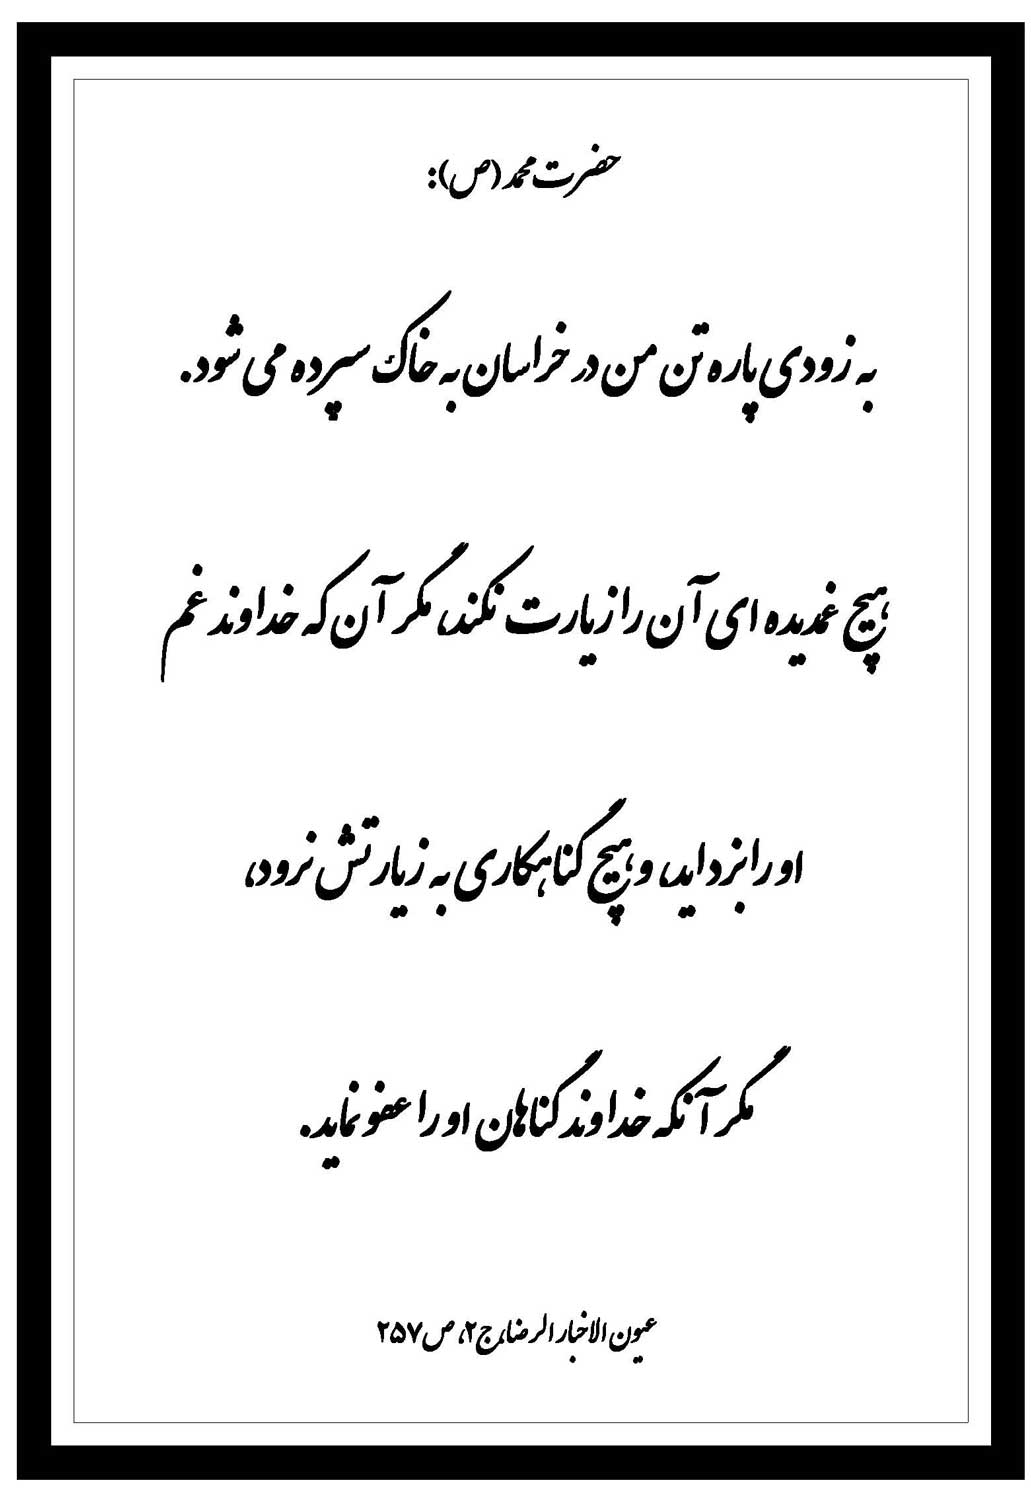 حضرت محمد (ص):
به زودی پاره تن من در خراسان به خاک سپرده می شود.
هیچ غمدیده ای آن را زیارت نکند، مگر آن که خداوند غم
او را بزداید، و هیچ گناهکاری به زیارتش نرود،
مگر آنکه خداوند گناهان او را عفو نماید.
عیون الاخبار الرضا، ج۲، ص۲۵۷